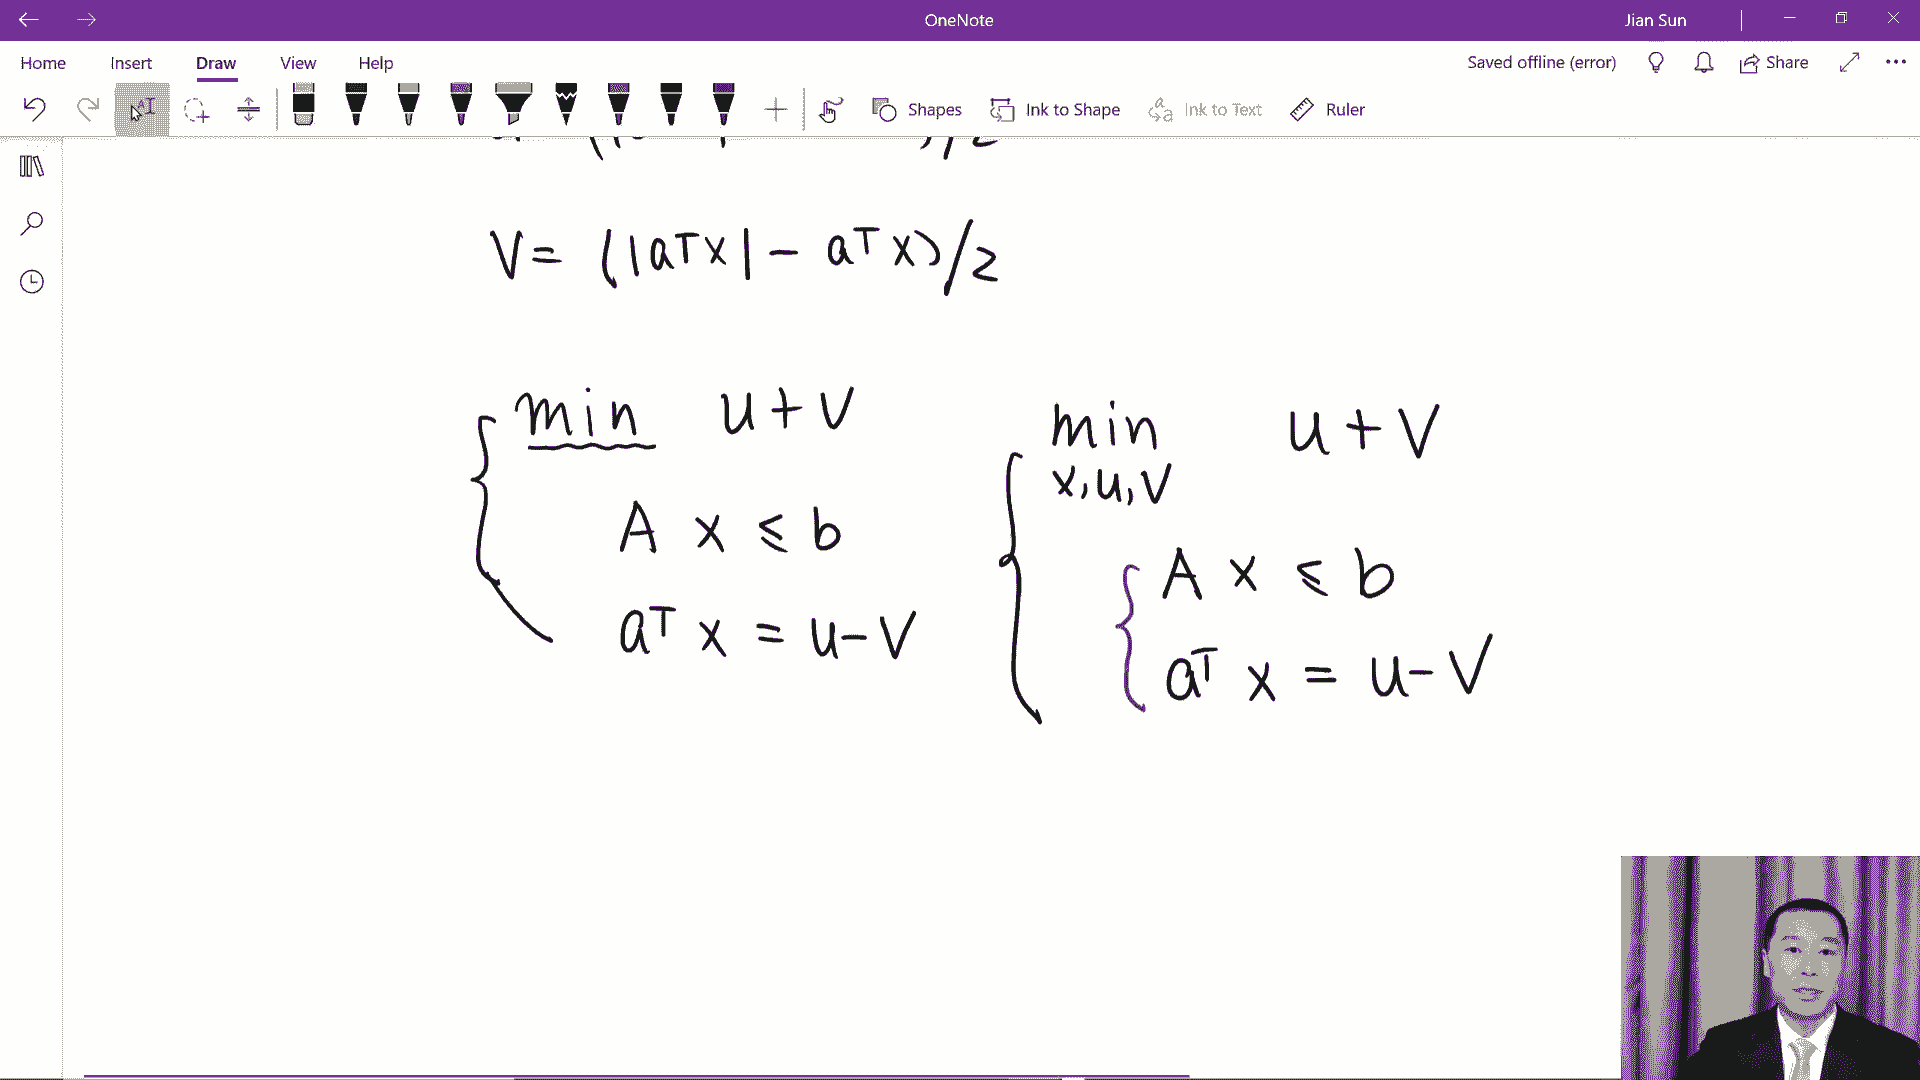 OneNote
Jian Sun
Home Insert Draw View Help
Saved offline (error) Share
Shapes Ink to Shape Ink to Text Ruler
V = (|aᵀx| − aᵀx)/2
min u + v
A x ≤ b
aᵀ x = u − v
min u + v
x, u, v
A x ≤ b
aᵀ x = u − v